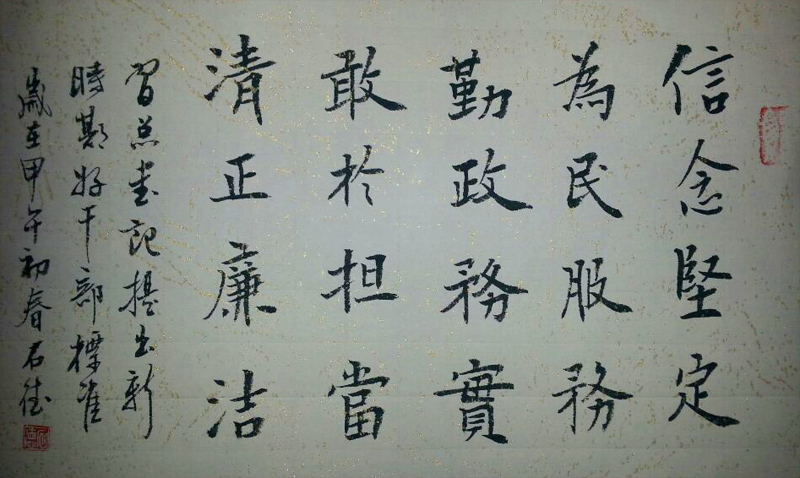 信念堅定
為民服務
勤政務實
敢於担當
清正廉洁
習总書記提出新
時期好干部標准
歲在甲午初春石佳